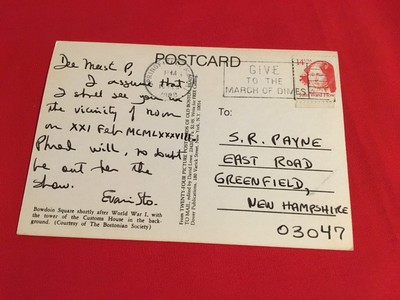 POSTCARD
Dee Meest P,
I assume that
I shall see you in
the vicinity of noon
on XXI Feb MCMLXXXVIII.
Phred will, no doubt
be out for the
show.
Evan Sto.
Bowdoin Square shortly after World War I, with
the tower of the Customs House in the back-
ground. (Courtesy of The Bostonian Society)
GIVE
TO THE
MARCH OF DIMES
14
To:
S.R. PAYNE
EAST ROAD
GREENFIELD,
NEW HAMPSHIRE
03047